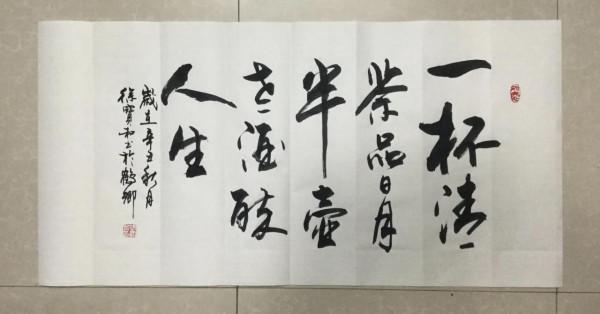 一杯清
茶品日月
半壶
老酒醉
人生
歲在辛丑秋月
徐寶和书於鶴鄉